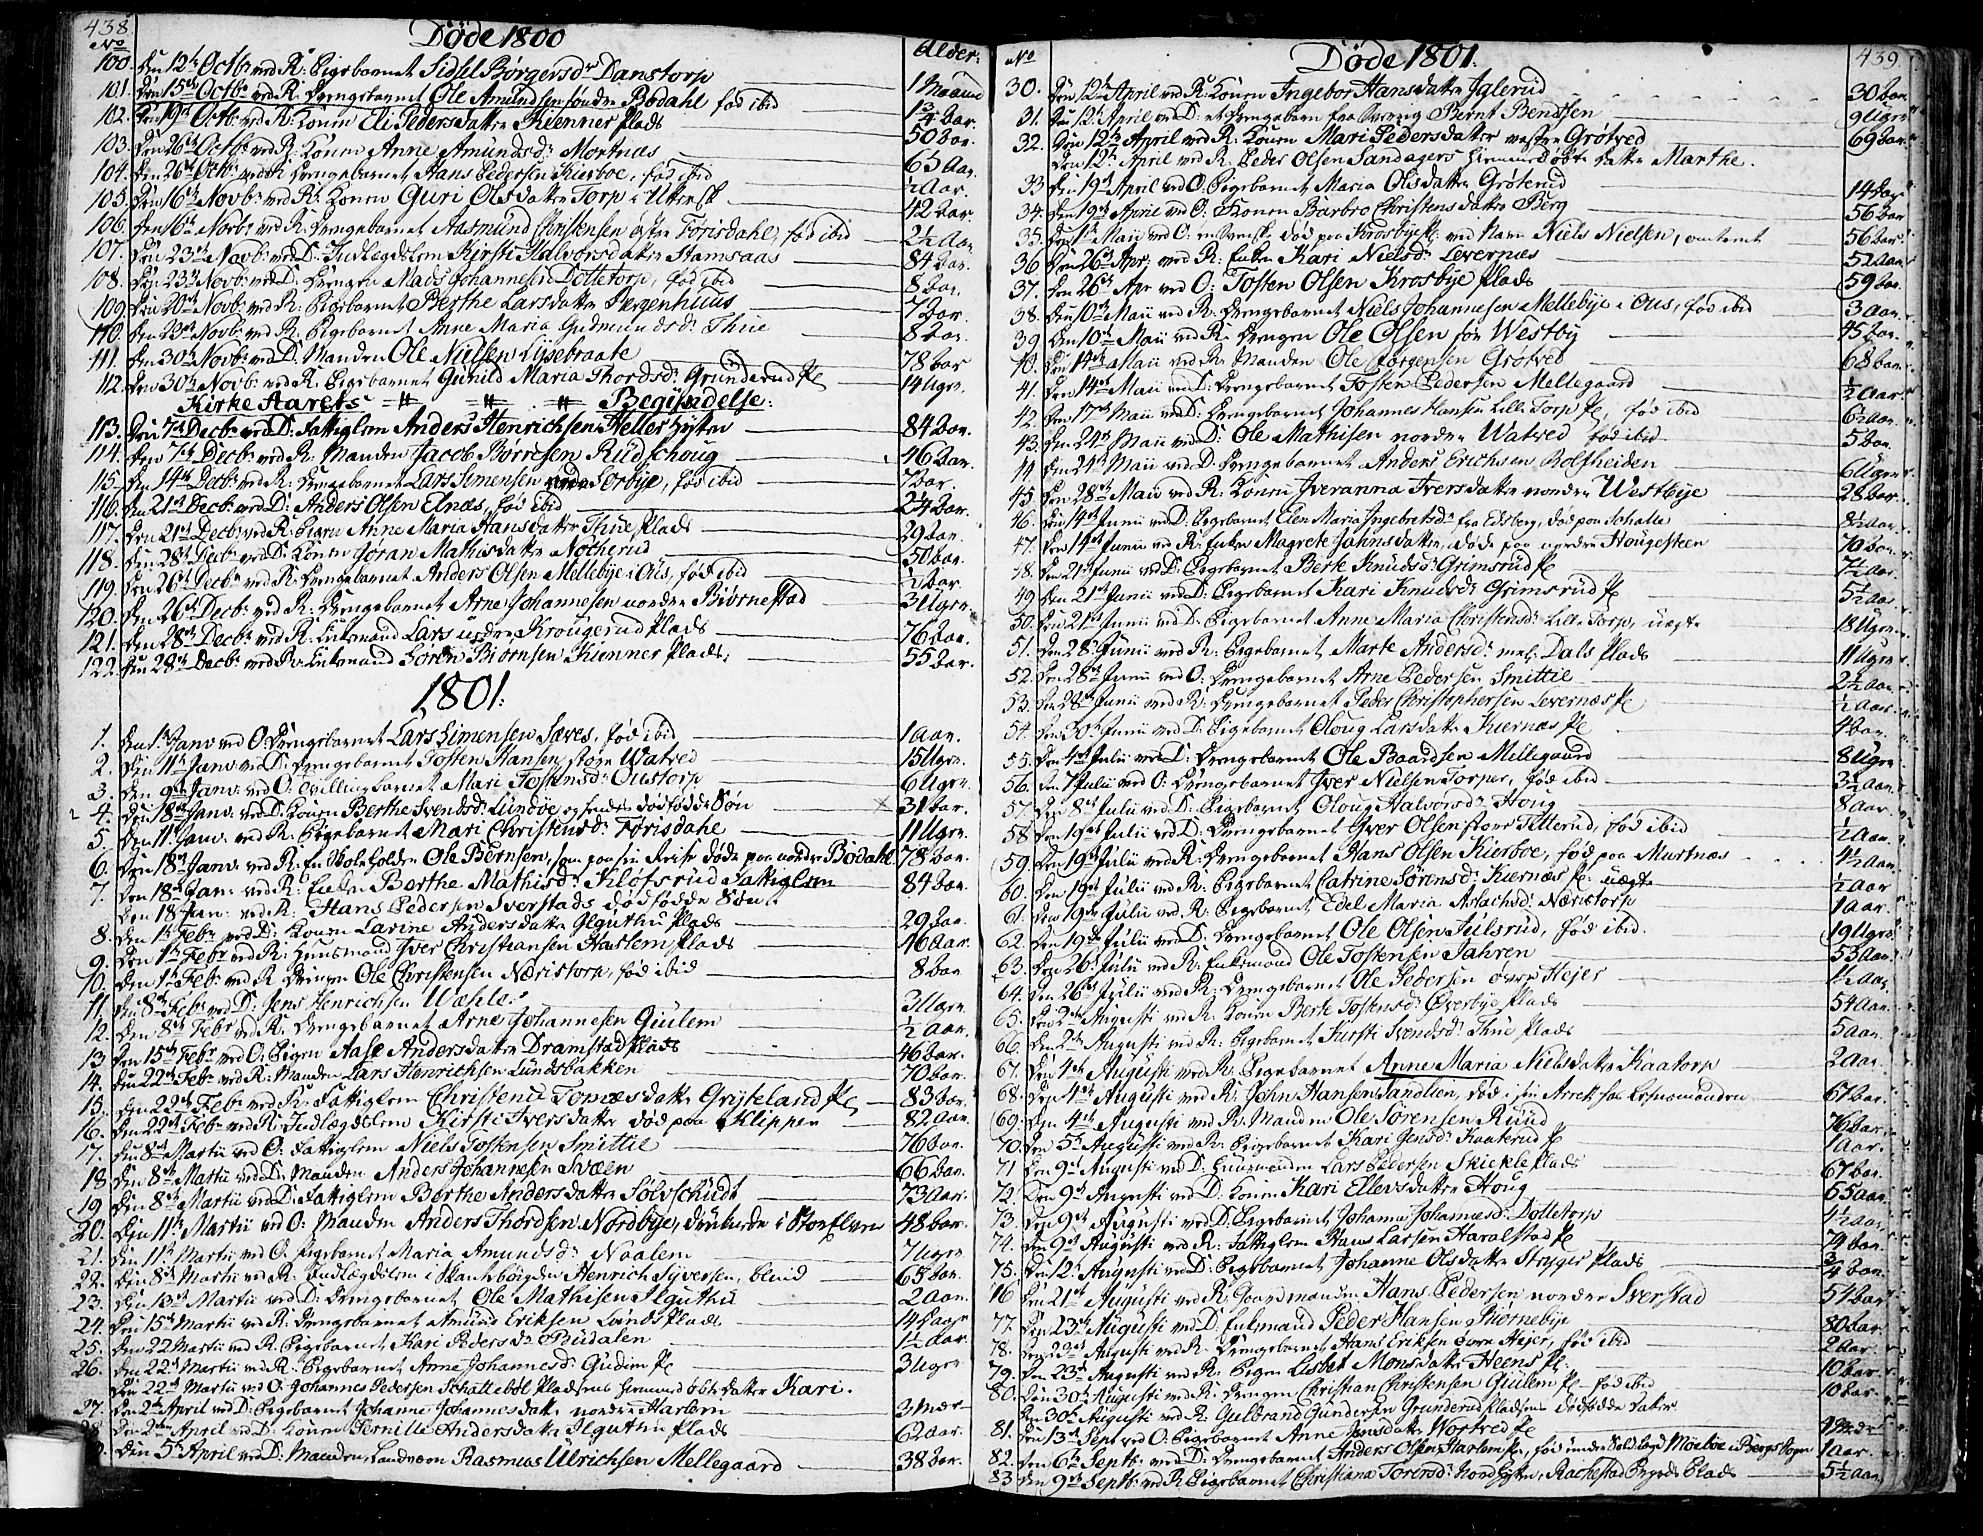 438.
Døde 1800
No Alder:
100. Den 12te Octb: ved R: Pigebarnet Sidsel Børgersdr Danstorp 1 Maaned
101. Den 15de Octbr ved R: Drengebarnet Ole Amundsen søndre Bødahl fød ibid 1 3/4 Aar.
102. Den 19de Octb: ved R: Konen Eli Pedersdatter Kienner Plads 50 Aar.
103. Den 26de Octb: ved R: Konen Anne Amundsdr Mortnæs 63 Aar.
104. Den 26de Octb: ved R Drengebarnet Hans Pedersen Kierboe, fød ibid 1/2 Aar.
105. Den 16de Novb: ved R: Konen Guri Olsdatter Torp i Uttersk 42 Aar.
106. Den 16de Novbr ved R: Drengebarnet Aasmund Christensen østre Forisdahl, fød ibid 2 1/2 Aar
107. Den 23de Novb: ved D: Indlegdslem Kirsti Halvorsdatter Hamsaas 84 Aar.
108. Den 23de Novb: ved D: Drengen Mads Johannesen Dottetorp, fød ibid 8 Aar.
109. Den 20de Novb: ved R: Pigebarnet Berthe Larsdatter Bergenhuus 7 Aar.
110. Den 23de Novb: ved R. Pigebarnet Anne Maria Gudmundsdr Thue 8 Aar.
111. Den 30te Novb: ved D: Manden Ole Nielsen Lysebraate 78 Aar
112. Den 30te Novb: ved R: Pigebarnet Gunild Maria Thordsdr Grunderud Pl 14 Ugr.
Kirke Aarets Begyndelse:
113. Den 7de Decbr ved D: Fattiglem Anders Henrichsen Heller hytten 84 Aar.
114. Den 7de Decbr ved R: Manden Jacob Borresen Rudschoug 46 Aar.
115. Den 14de Decbr ved R: Drengebarnet Lars Simensen Sørbye, fød ibid 7 Aar.
116. Den 21de Decbr ved D: Anders Olsen Elnæs, fød ibid 24 Aar.
117. Den 21de Decbr ved R: Pigen Anne Maria Hansdatter Thue Plads 29 Aar.
118. Den 28de Decbr ved D: Konen Joran Mathisdatter Nøcherud 50 Aar.
119. Den 26de Decbr ved R: Drengebarnet Anders Olsen Mellebye i Ous, fød ibid Aar.
120. Den 26de Decbr ved R: Drengebarnet Arne Johannesen nordre Biørnestad 3 Ugr.
121. Den 28de Decbr ved R: Enkemand Lars Krougerud Plads 76 Aar.
122. Den 28de Decbr ved R: Enkemand Søren Biørnsen Kienner Plads. 55 Aar.
1801.
1. Den 1te Janv ved O: Drengebarnet Lars Simensen Sæves, fød ibid 1 Aar.
2. Den 11te Janv ved D: Drengebarnet Tosten Hansen store Watved 15 Ugr.
3. Den 9de Janv: ved O: Tvillingbarnet Mari Tostensdr Oustorp 6 Ugr.
4. Den 18de Janv: ved D: Konen Berthe Svendsdr Lundbye og hendes dødfødde Søn 31 Aar.
5. Den 11te Janv: ved R: Pigebarnet Mari Christensdr Forisdahl 11 Ugr.
6. Den 18de Janv: ved R: En Skoleholder Ole Børnsen, som paa sin Reise døde paa nordre Bødahl 78 Aar.
7. Den 18de Jan: ved R: Enken Berthe Mathisdr Kløfsrud Fattiglem 84 Aar.
Den 18 Jan: ved R: Hans Pedersen Sverstads dødfødde Søn.
8. Den 1te Febr ved D: Konen Larine Andersdatter Ilguthu Plads 29 Aar.
9. Den 1te Febr ved R: Huusmand Iver Christiansen Harlem plads 46 Aar.
10. Den 1te Febr ved R Drengen Ole Christensen Næristorp, fød ibid 8 Aar
11. Den 8de Feb: ved D: Jens Henrichsen Wæhle. 3 Ugr.
12. Den 8de Febr ved R: Drengebarnet Arne Johannesen Giulem 1/2 Aar.
13. Den 15de Febr ved O: Pigen Aase Andersdatter Dramstad Plads 46 Aar.
14. Den 22de Febr ved R: Manden Lars Henrichsen Lundsbakken 70 Aar.
15. Den 22de Febr ved R: Fattiglem Christence Tomæsdatter Gryteland Pl. 83 Aar.
16. Den 22de Febr ved R: Indlægdslem Kirsti Iversdatter død paa Klippen 82 Aar.
17. Den 8de Martii ved O: Fattiglem Niels Tostensen Smittie 76 Aar.
18. Den 8de Martii ved D: Manden Anders Johannesen Svæen 66 Aar.
19. Den 8de Martii ved D: Fattiglem Berthe Andersdatter Sølvschudt 73 Aar.
20. Den 11te Martii ved O: Manden Anders Thordsen Nordbye, druknede i Storelven 48 Aar.
21. Den 11te Martii ved O. Pigebarnet Maria Amundsdr Naalem 7 Ugr.
22. Den 8de Martii ved R. Indlegdslem i Skantzbøygden Henrich Syversen, blind 63 Aar.
23. Den 13de Martii ved D: Drengebarnet Ole Mathisen Ilguthu 2 Aar.
24. Den 15de Martii ved R: Drengebarnet Amund Eriksen Lunds Plads 14 Dage
25. Den 22 Martii ved R. Pigebarnet Kari Pedersdr Budalen 1 1/2 Aar.
26. Den 22de Martii ved R. Pigebarnet Anne Johannesdr Gudim Pl 3 Ugr
Den 22de Martii ved O. Johannes Pedersen Schattebøl Pladsens hiemmedøbte datter Kari.
27. Den 2den April ved D: Pigebarnet Johanne Johannesdatter nordre Harlem 3 Mdr
28. Den 2den April ved D: Konen Pernille Andersdatter Ilguthu Plads 62 Aar.
Den 5te April ved D: Manden Landværn Rasmus Ulrichsen Mellegaard 38 Aar.
439.
Døde 1801.
No
30. Den 12te April ved R: Konen Ingebor Hansdatter Iglerud 30 Aar.
31. Den 12te April ved D: et Drengebarn fra Sverrig Bernt Bendtsen 9 Ugr
32. Den 12te April ved R: Konen Mari Pedersdatter vestre Grøtved 69 Aar.
Den 12te April ved R. Peder Olsen Sandagers hiemmedøbte datter Marthe.
33. Den 19de April ved O. Pigebarnet Maria Olsdatter Grøterud 14 Dage
34. Den 19de April ved O: Konen Barbro Christensdatter Berg 56 Aar
35. Den 1te Maii ved O: en Svensk død paa Krosbye Pl: ved Navn Niels Nielsen, omtrent 56 Aar.
36. Den 26de Apr: ved R: Enken Kari Nielsdr Levernæs 52 Aar
37. Den 26de Apr ved O: Tosten Olsen Krosbye Plads 59 Aar.
38. Den 10de Maii ved R: Drengebarnet Niels Johannesen Mellebye i Ous, fød ibid 3 Aar.
39. Den 10de Maii ved R: Drengen Ole Olsen søn Westby 45 Aar.
40. Den 14de Maii ved R: Manden Ole Jørgensen Grøtved 68 Aar.
41. Den 14de Maii ved D: Drengebarnet Tosten Pedersen Mellegaard 1/2 Aar
42. Den 17de Maii ved D: Drengebarnet Johannes Hansen Lille Torp Pl, fød ibid 6 1/2 Aar.
43. Den 24de Maii ved D: Ole Mathisen nordre Watved fød ibid 5 Aar
44. Den 24de Maii ved D: Drengebarnet Anders Erichsen Bolfheiden 6 Ugr.
45. Den 28de Maii ved R: Konen Iveranna Iversdatter nordre Westbye 28 Aar.
46. Den 14de Junii ved D: Pigebarnet Elen Maria Ingebretsdr fra Edsberg, død paa Schotte 8 1/2 Aar.
47. Den 14de Junii ved R: Enken Magrete Johnsdatter, døde paa nordre Hougesteen 70 Aar.
48. Den 21de Junii ved D: Pigebarnet Berte Knudsdr Grimsrud Pl 7 1/2 Aar.
49. Den 21de Junii ved D: Pigebarnet Kari Knudsdr Grimsrud Pl 5 1/2 Aar
50. Den 21de Junii ved D: Pigebarnet Anne Maria Christensdr Lille Torp, uægte 18 Ugr.
51. Den 28de Junii ved R: Pigebarnet Marte Andersdr mel. Dals Plads 11 Ugr.
52. Den 28de Junii ved O: Drengebarnet Arne Pedersen Smittie 2 1/2 Aar.
53. Den 28de Junii ved R: Drengebarnet Peder Christophersen Levernæs Pl 1/2 Aar.
54. Den 30te Junii ved D: Pigebarnet Oloug Larsdatter Kiernæs Pl 4 Aar.
55. Den 4de Julii ved D: Drengebarnet Ole Baardsen Mellegaard 8 Ugr
56. Den 7 Julii ved O: Drengebarnet Iver Nielsen Torper, fød ibid 3 1/2 Aar.
57. Den 8de Julii ved D: Pigebarnet Oloug Halvorsdr Houg 8 Aar
58. Den 19de Julii ved D: Drengebarnet Yver Olsen store Titterud, fød ibid 1/2 Aar.
59. Den 19de Julii ved R: Drengebarnet Hans Olsen Kierboe, fød paa Murtnæs 4 1/2 Aar.
60. Den 19de Julii ved R: Pigebarnet Catrine Sørensdr Kiernæs Pl uægte 1/2 Aar
61. Den 19de Julii ved R: Pigebarnet Edel Maria Aslachsdr Næristorp 1 Aar.
62. Den 19de Julii ved D: Drengebarnet Ole Olsen Julsrud, fød ibid. 19 Ugr.
63. Den 26de Julii ved R: Enkemand Ole Tostensen Jahren 53 Aar
64. Den 26de Julii ved R: Drengebarnet Ole Pedersen øvre Hejer 1 1/2 Aar
65. Den 2den Augusti ved R: Konen Berte Tostensdr Overbye Plads 54 Aar.
66. Den 2de Augusti ved R: Pigebarnet Kirsti Svendsdr Thue Plads 5 Aar.
67. Den 4de Augusti ved R: Pigebarnet Anne Maria Nielsdatter Kaatorp 2 Aar.
68. Den 4de Augusti ved R: John Hansen Sandlien, død i sin Arrest hos Lehnsmanden 67 Aar.
69. Den 4de Augusti ved R: Manden Ole Sørensen Ruud 76 Aar.
70. Den 5te Augusti ved R: Pigebarnet Kari Jensdr Kaaterud Pl 1 Aar.
71. Den 9de Augusti ved D: Huusmanden Lars Pedersen Skiekle Plads 67 Aar.
72. Den 9de Augusti ved D: Konen Kari Ellevsdatter Houg 65 Aar.
73. Den 9de Augusti ved D: Pigebarnet Johanne Johannesdr Dottetorp 4 1/2 Aar
74. Den 9de Augusti ved R: Fattiglem Hans Larsen Haralstad Pl 74 Aar.
75. Den 12te Augusti ved D: Pigebarnet Johanne Olsdatter Stryger Plads 3/4 Aar.
76. Den 21de Augusti ved R: Gaardmanden Hans Pedersen nordre Sverstad 54 Aar
77. Den 23de Augusti ved D: Enkemand Peder Hansen Biørnebye 80 Aar.
78. Den 23de Augusti ved R: Drengebarnet Hans Eriksen øvre Hejer, fød ibid 2 Aar.
79. Den 23de Augusti ved R: Pigen Lisbet Monsdatter Heens Pl. 10 Aar
80. Den 30te Augusti ved R: Drengen Christian Christensen Giulem Pl fød ibid 10 Aar.
Den 30te Augusti ved R: Gulbrand Gundersen Grunderud Pladsens dødfødde datter.
81. Den 13de Sept ved O: Pigebarnet Anne Jensdatter Wortved Pl Mdr
82. Den 6te Septb: ved D: Drengebarnet Anders Olsen Harlem Pl, fød under Soldberg Moeboe i Bergs Sogn 1 Aar.
83. Den 9de Septb: ved R Pigebarnet Christiana Torersdr Nordhytten, Rachestad Plads 5 1/2 Aar